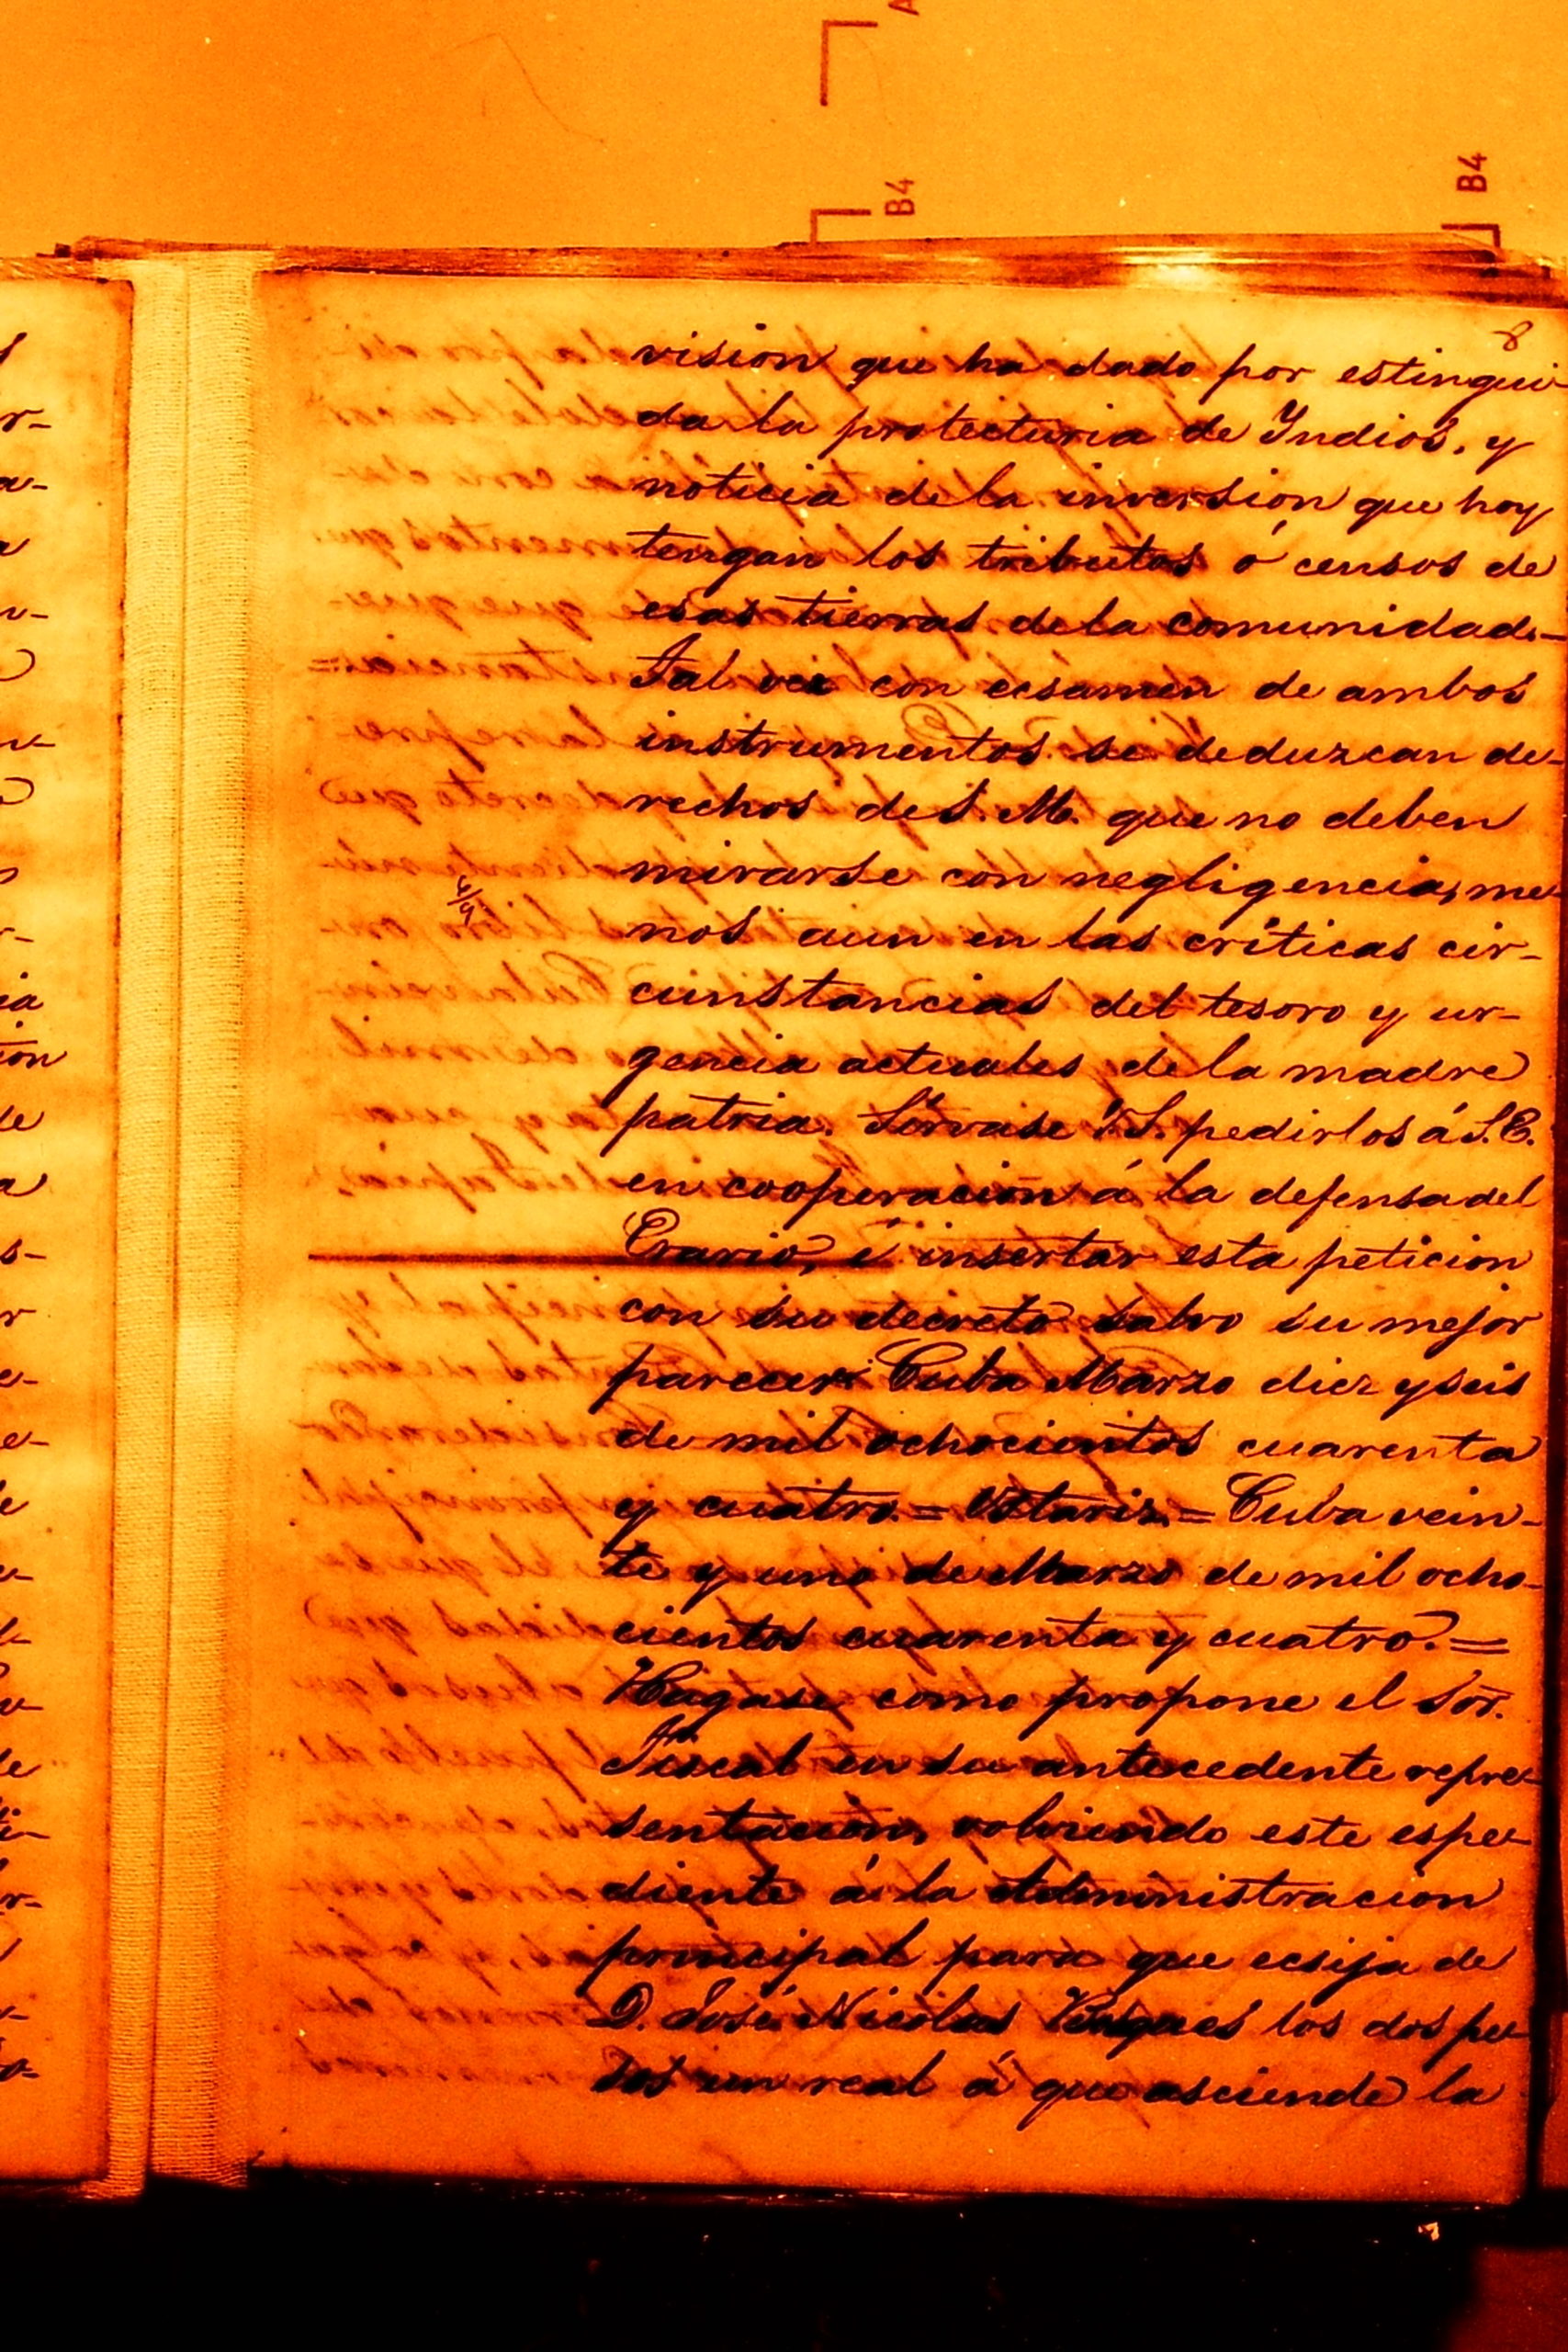 A
B4
B4
8
vision que ha dado por estingui-
da la protecturia de Yndios, y
noticia de la inversion que hoy
tengan los tributos ó censos de
esas tierras de la comunidad.-
Tal vez con ecsámen de ambos
instrumentos se deduzcan de-
rechos de S. M. que no deben
mirarse con negligencia, me-
nos aun en las críticas cir-
cunstancias del tesoro y ur-
gencia actuales de la madre
patria. Sírvase V.S. pedirlos á S.E.
en cooperacion á la defensa del
Erario, é insertar esta peticion
con su decreto salvo su mejor
parecer. Cuba Marzo diez y seis
de mil ochocientos cuarenta
y cuatro.= =Cuba vein-
te y uno de Marzo de mil ocho-
cientos cuarenta y cuatro.=
Hágase como propone el Sor.
Fiscal en su antecedente repre-
sentacion, volviendo este espe-
diente á la Administracion
principal para que ecsija de
D. José Nicolas los dos pe-
sos un real á que asciende la